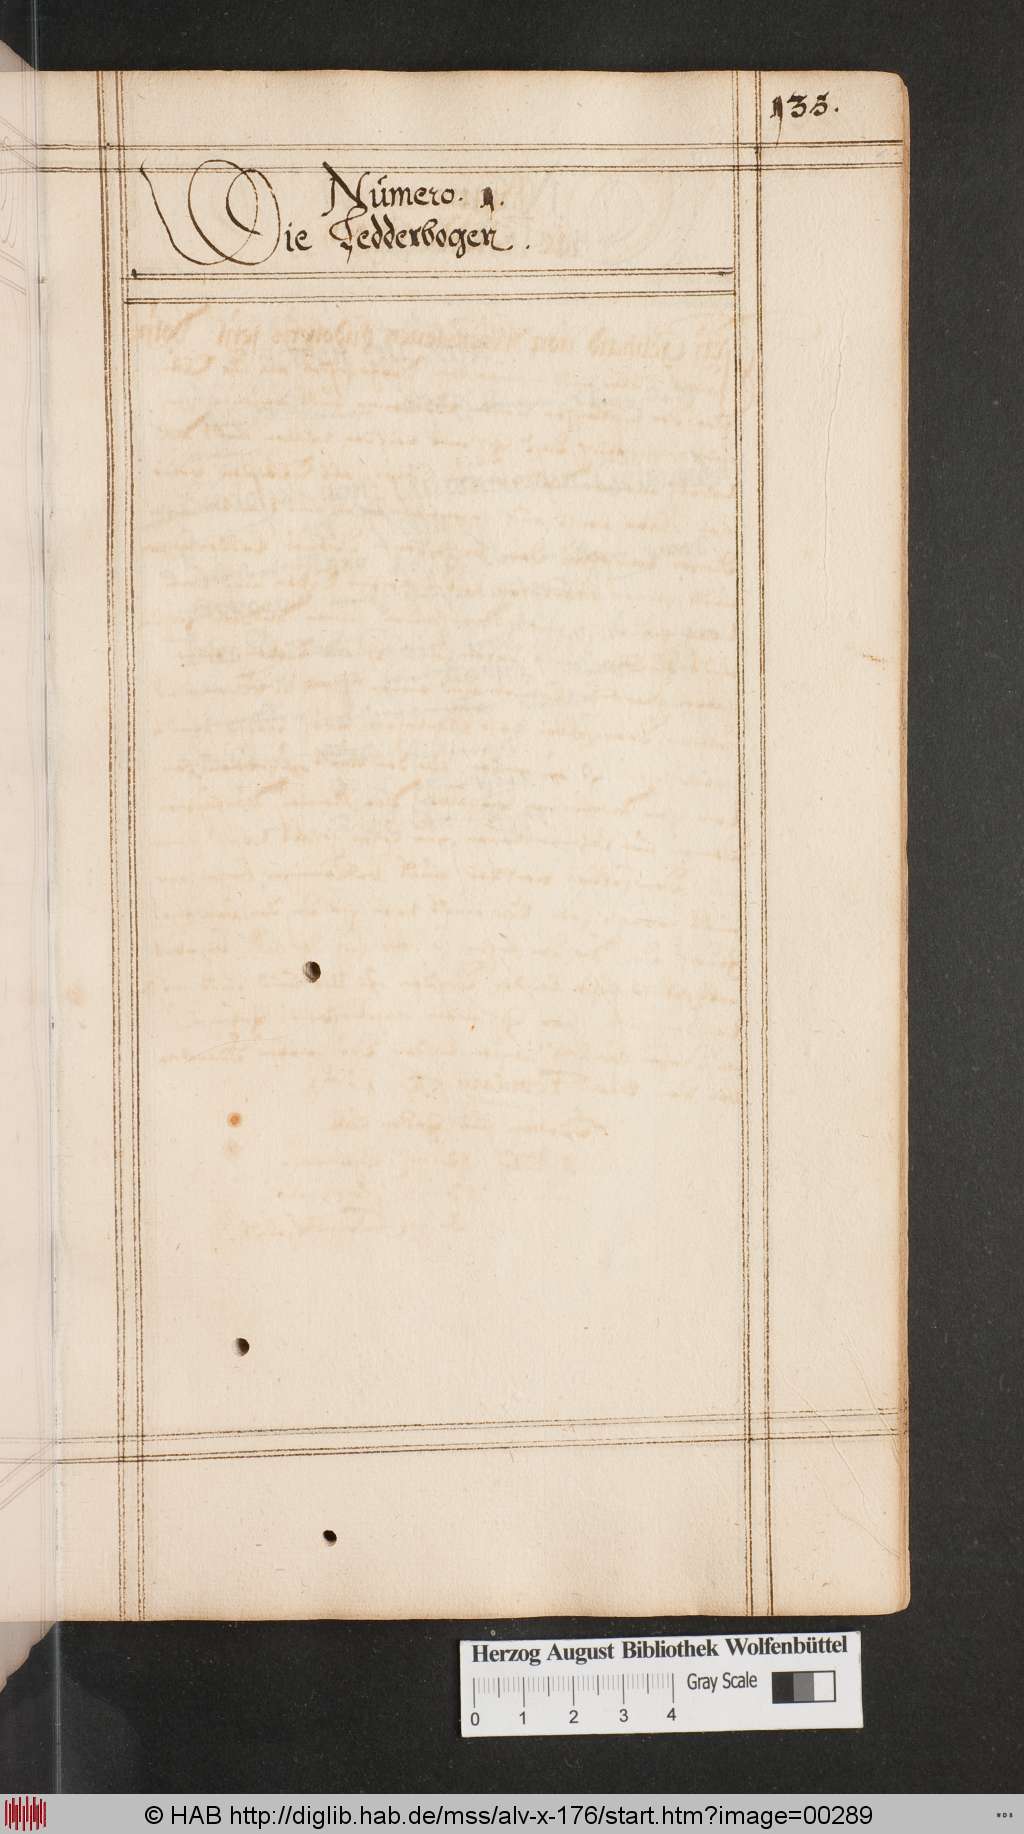 135.
Número. 1.
Die Fedderbogen.
Herzog August Bibliothek Wolfenbüttel
Gray Scale
0 1 2 3 4
© HAB http://diglib.hab.de/mss/alv-x-176/start.htm?image=00289